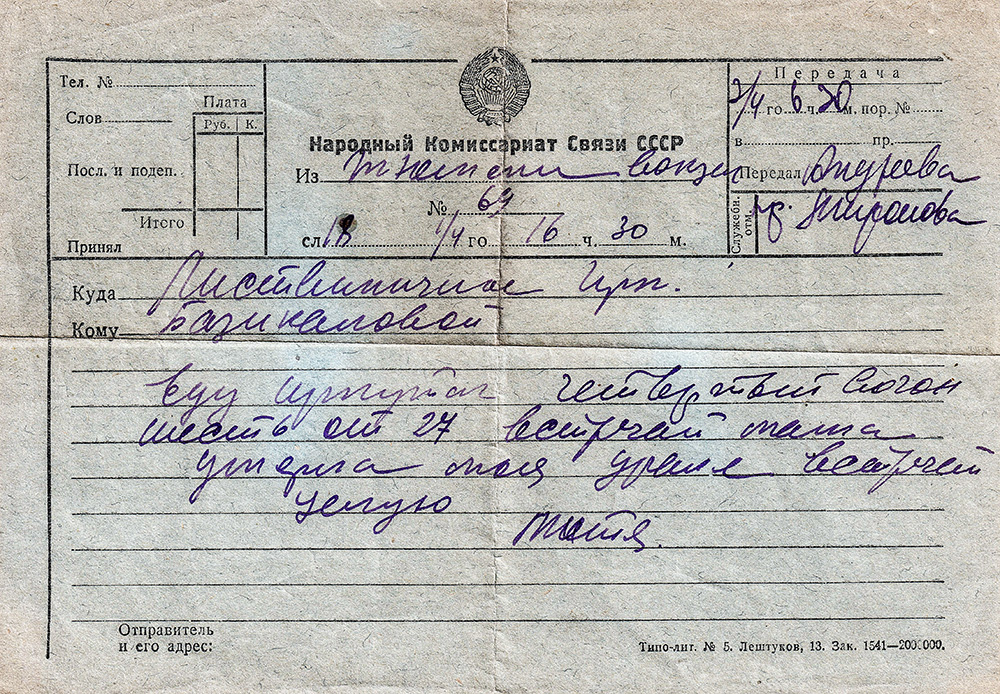 Тел. №
Слов
Плата
Руб. К.
Посл. и подеп.
Итого
Принял
Народный Комиссариат Связи СССР
Из Тюмени вокзал
№ 64
сл. 18 1/4 го 16 ч. 30 м.
Передача
2/4 го 6 ч. 20 м. пор. №
в пр.
Передал Андреева
Служебн. отм.
пр. Миронова
Куда Лиственичное Ирк.
Кому Базикаловой
Еду Иркутск четвертый вагон
шесть от 27 встречай мама
умерла моя встречай
целую
Тотя.
Отправитель
и его адрес:
Типо-лит. № 5. Лештуков, 13. Зак. 1541—200.000.